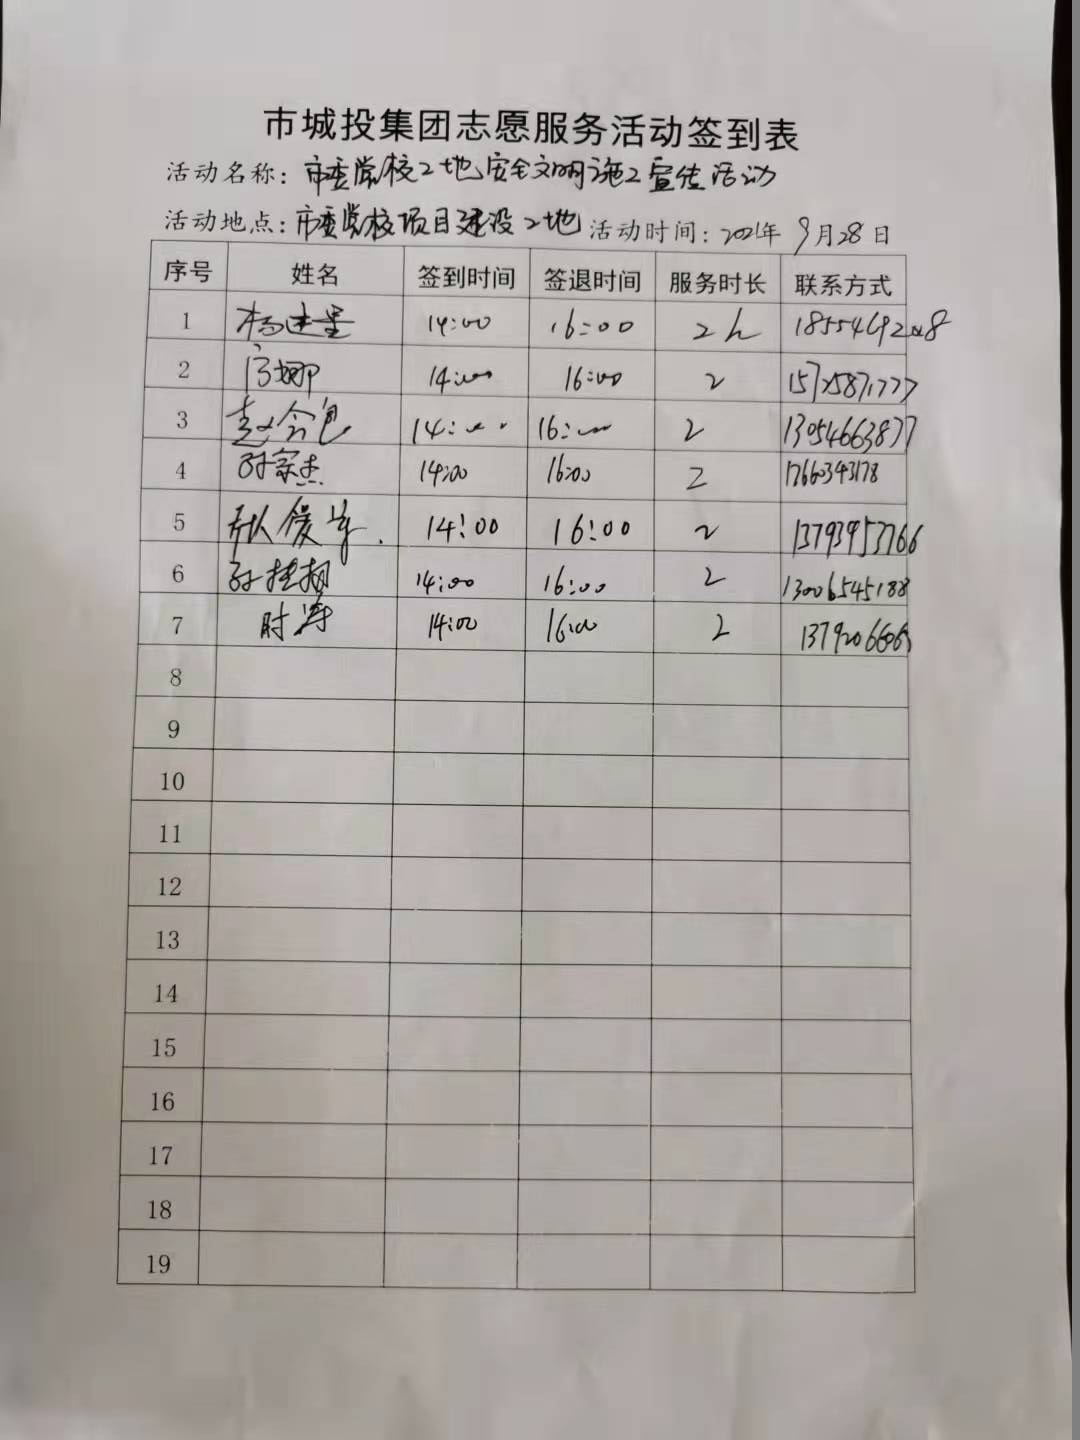 市城投集团志愿服务活动签到表
活动名称：市委党校工地安全文明施工宣传活动
活动地点：市委党校项目建设工地 活动时间：2021年 9月28日
序号 姓名 签到时间 签退时间 服务时长 联系方式
1 14:00 16:00 2h
2 14:00 16:00 2 15725871777
3 14:00 16:00 2 13054663877
4 孙宗杰 14:00 16:00 2 17660343178
5 14:00 16:00 2 13793953766
6 14:00 16:00 2 13006545188
7 时涛 14:00 16:00 2
8
9
10
11
12
13
14
15
16
17
18
19